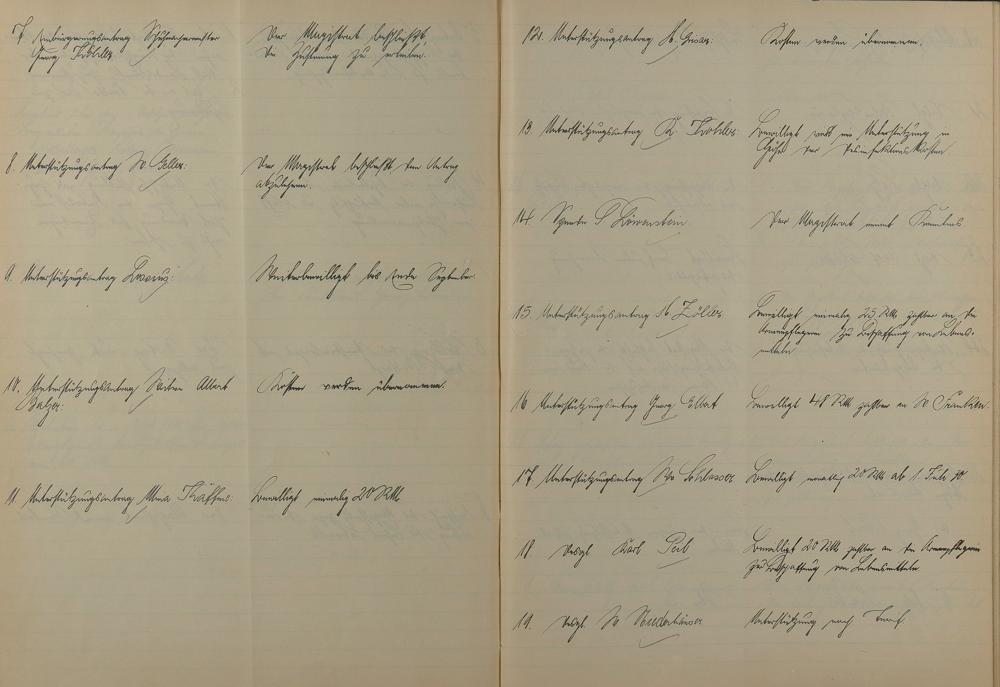 7. Einbürgerungsantrag Schuhmachermeister
Georg
Der Magistrat beschließt,
die Zustimmung zu erteilen.
8. Unterstützungsantrag W. Geller.
Der Magistrat beschließt den Antrag
abzulehnen.
9. Unterstützungsantrag
Weiterbewilligt bis Ende September.
10. Unterstützungsantrag Witwe Albert
Balzer.
Kosten werden übernommen.
11. Unterstützungsantrag
Bewilligt einmalig 20 RM.
12. Unterstützungsantrag
Kosten werden übernommen.
13. Unterstützungsantrag K.
Bewilligt wird eine Unterstützung in
Höhe der Desinfektionskosten
14. Spende Löwenstein
Der Magistrat nimmt Kenntnis
15. Unterstützungsantrag Zöller
Bewilligt einmalig 25 RM. zahlbar an die
Armenpflegerin zur Beschaffung von Lebens-
mitteln
16 Unterstützungsantrag Georg Elbert
Bewilligt 48 RM zahlbar an W. Franken.
17 Unterstützungsantrag Schlosser
Bewilligt monatlich 20 RM ab 1. Juli 30.
18 Desgl. Karl
Bewilligt 20 RM zahlbar an die Armenpflegerin
zur Beschaffung von Lebensmitteln
19. Desgl. W. Niederhäuser
Unterstützung nach Tarif